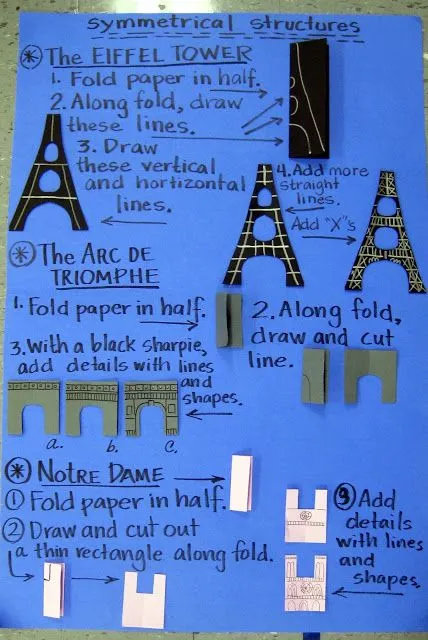 symmetrical structures
* The EIFFEL TOWER
1. Fold paper in half.
2. Along fold, draw
these lines.
3. Draw
these vertical
and hortizontal
lines.
4. Add more
straight
lines.
Add "X"s
* The ARC DE
TRIOMPHE
1. Fold paper in half.
2. Along fold,
draw and cut
line.
3. With a black sharpie,
add details with lines
and
shapes.
a. b. c.
* NOTRE DAME
1 Fold paper in half.
2 Draw and cut out
a thin rectangle along fold.
3 Add
details
with lines
and
shapes.